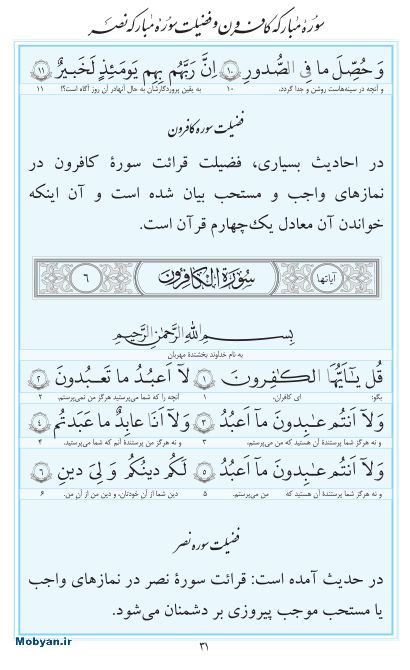 سورهٔ مبارکه کافرون و فضیلت سورهٔ مبارکه نصر
وَ حُصِّلَ ما فِی الصُّدورِ ﴿۱۰﴾ اِنَّ رَبَّهُم بِهِم یَومَئِذٍ لَخَبیرٌ ﴿۱۱﴾
و آنچه در سینه‌هاست روشن و جدا گردد. ۱۰ به یقین پروردگارشان به حال آنهادر آن روز آگاه است؟! ۱۱
فضیلت سوره کافرون
در احادیث بسیاری، فضیلت قرائت سورهٔ کافرون در
نمازهای واجب و مستحب بیان شده است و آن اینکه
خواندن آن معادل یک‌چهارم قرآن است.
آیاتها سورة الکافرون ۶
بِسمِ اللهِ الرَّحمٰنِ الرَّحیمِ
به نام خداوند بخشندهٔ مهربان
قُل یٰٓاَیُّهَا الکٰفِرونَ ﴿۱﴾ لَآ اَعبُدُ ما تَعبُدونَ ﴿۲﴾
بگو: ای کافران، ۱ آنچه را که شما می‌پرستید، من هرگز نمی‌پرستم. ۲
وَلَآ اَنتُم عٰبِدونَ مَآ اَعبُدُ ﴿۳﴾ وَلَآ اَنَا عابِدٌ ما عَبَدتُم ﴿۴﴾
و نه هرگز شما پرستندهٔ آن هستید که من می‌پرستم، ۳ و نه هرگز من پرستندهٔ آنم که شما می‌پرستید. ۴
وَلَآ اَنتُم عٰبِدونَ مَآ اَعبُدُ ﴿۵﴾ لَکُم دینُکُم وَ لِیَ دینِ ﴿۶﴾
و نه هرگز شما پرستندهٔ آن هستید که من می‌پرستم. ۵ دین شما از آن خودتان، و دین من از آن من. ۶
فضیلت سوره نصر
در حدیث آمده است: قرائت سورهٔ نصر در نمازهای واجب
یا مستحب موجب پیروزی بر دشمنان می‌شود.
۳۱
Mobyan.ir